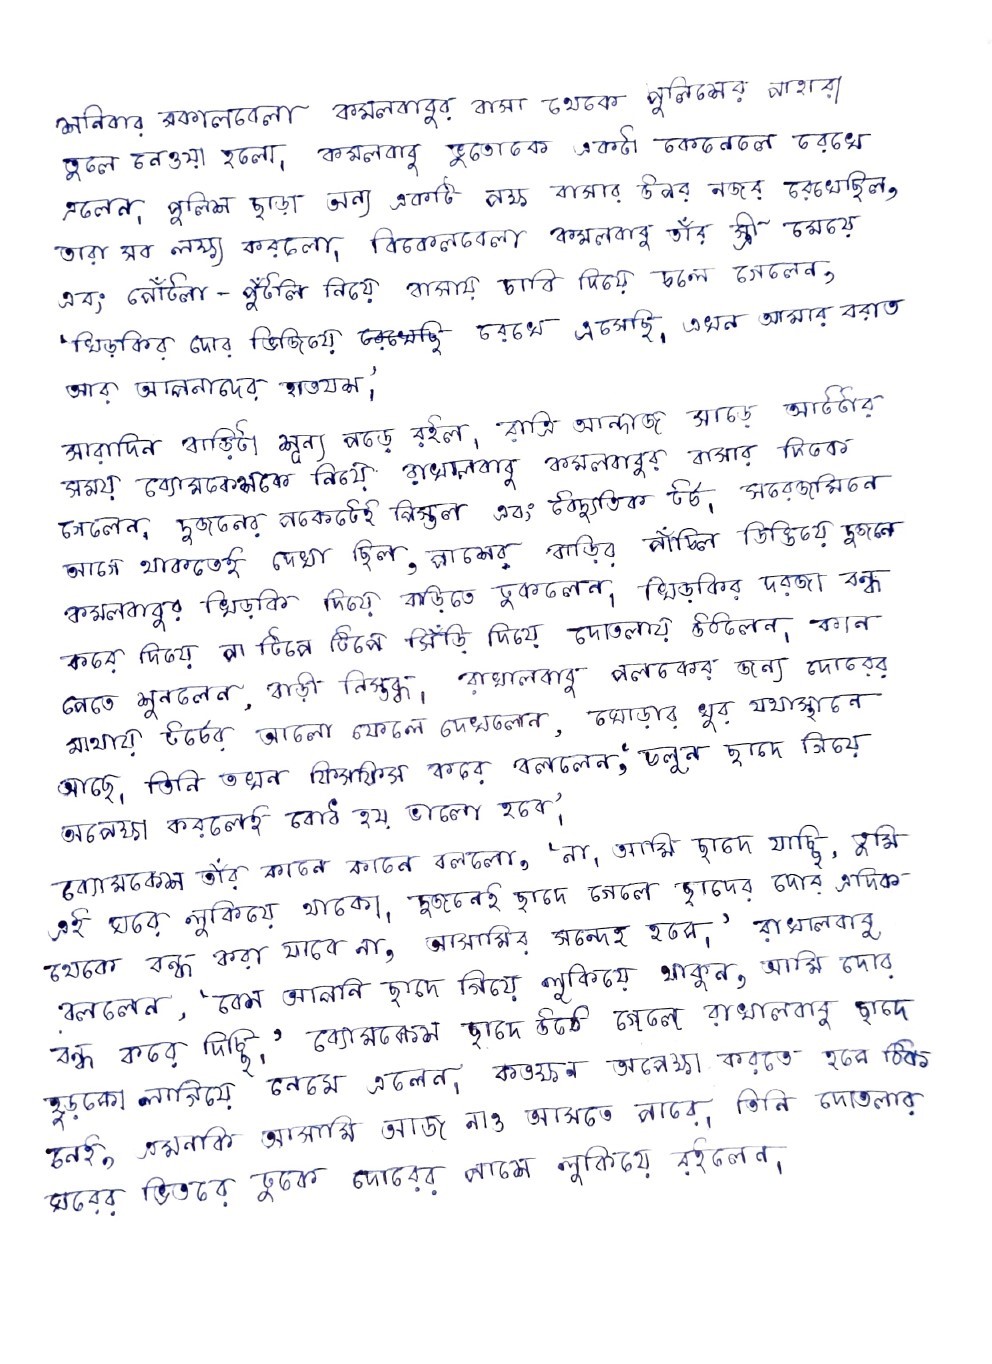 শনিবার সকালবেলা কমলবাবুর বাসা থেকে পুলিশের পাহারা
তুলে নেওয়া হলো। কমলবাবু ভুতোকে একটা কেনেলে রেখে
এলেন। পুলিশ ছাড়া অন্য একটি পক্ষ বাসার উপর নজর রেখেছিল,
তারা সব লক্ষ্য করলো। বিকেলবেলা কমলবাবু তাঁর স্ত্রী মেয়ে
এবং পোঁটলা - পুঁটলি নিয়ে বাসায় চাবি দিয়ে চলে গেলেন,
'খিড়কির দোর ভিজিয়ে রেখে এসেছি। এখন আমার বরাত
আর আপনাদের হাতযশ।'
সারাদিন বাড়িটা শূন্য পড়ে রইল। রাত্রি আন্দাজ সাড়ে আটটার
সময় ব্যোমকেশকে নিয়ে রাখালবাবু কমলবাবুর বাসার দিকে
গেলেন। দুজনের পকেটেই পিস্তল এবং বৈদ্যুতিক টর্চ। সরেজমিনে
আগে থাকতেই দেখা ছিল, পাশের বাড়ির পাঁচিল ডিঙিয়ে দুজনে
কমলবাবুর খিড়কি দিয়ে বাড়িতে ঢুকলেন। খিড়কির দরজা বন্ধ
করে দিয়ে পা টিপে টিপে সিঁড়ি দিয়ে দোতলায় উঠলেন। কান
পেতে শুনলেন, বাড়ী নিস্তব্ধ। রাখালবাবু পলকের জন্য দোরের
মাথায় টর্চের আলো ফেলে দেখলেন, ঘোড়ার খুর যথাস্থানে
আছে। তিনি তখন ফিসফিস করে বললেন, 'চলুন ছাদে গিয়ে
অপেক্ষা করলেই বোধ হয় ভালো হবে।'
ব্যোমকেশ তাঁর কানে কানে বললো, 'না, আমি ছাদে যাচ্ছি, তুমি
এই ঘরে লুকিয়ে থাকো। দুজনেই ছাদে গেলে ছাদের দোর এদিক
থেকে বন্ধ করা যাবে না, আসামির সন্দেহ হবে।' রাখালবাবু
বললেন, 'বেশ আপনি ছাদে গিয়ে লুকিয়ে থাকুন, আমি দোর
বন্ধ করে দিচ্ছি।' ব্যোমকেশ ছাদে উঠে গেলে রাখালবাবু ছাদে
হুড়কো লাগিয়ে নেমে এলেন। কতক্ষন অপেক্ষা করতে হবে ঠিক
নেই, এমনকি আসামি আজ নাও আসতে পারে। তিনি দোতলার
ঘরের ভিতরে ঢুকে দোরের পাশে লুকিয়ে রইলেন।